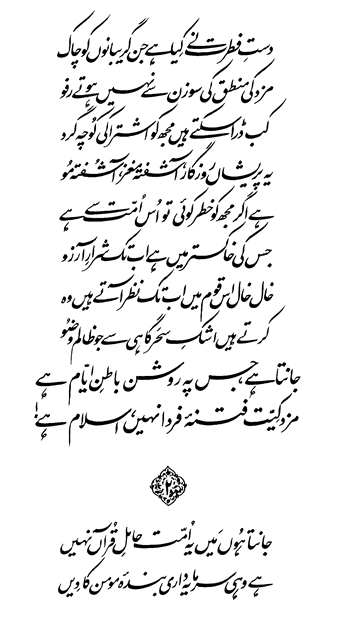 دستِ فطرت نے کِیا ہے جن گریبانوں کو چاک
مزدکی منطق کی سوزن سے نہیں ہوتے رفو
کب ڈرا سکتے ہیں مجھ کو اشتراکی کُوچہ گرد
یہ پریشاں روزگار، آشفتہ مغز، آشفتہ مُو
ہے اگر مجھ کو خطر کوئی تو اُس اُمّت سے ہے
جس کی خاکستر میں ہے اب تک شرارِ آرزو
خال خال اس قوم میں اب تک نظر آتے ہیں وہ
کرتے ہیں اشکِ سحر گاہی سے جو ظالم وضُو
جانتا ہے، جس پہ روشن باطنِ ایّام ہے
مزدکِیّت فتنۂ فردا نہیں، اسلام ہے!
۲
جانتا ہُوں مَیں یہ اُمّت حاملِ قُرآں نہیں
ہے وہی سرمایہ داری بندۂ مومن کا دِیں